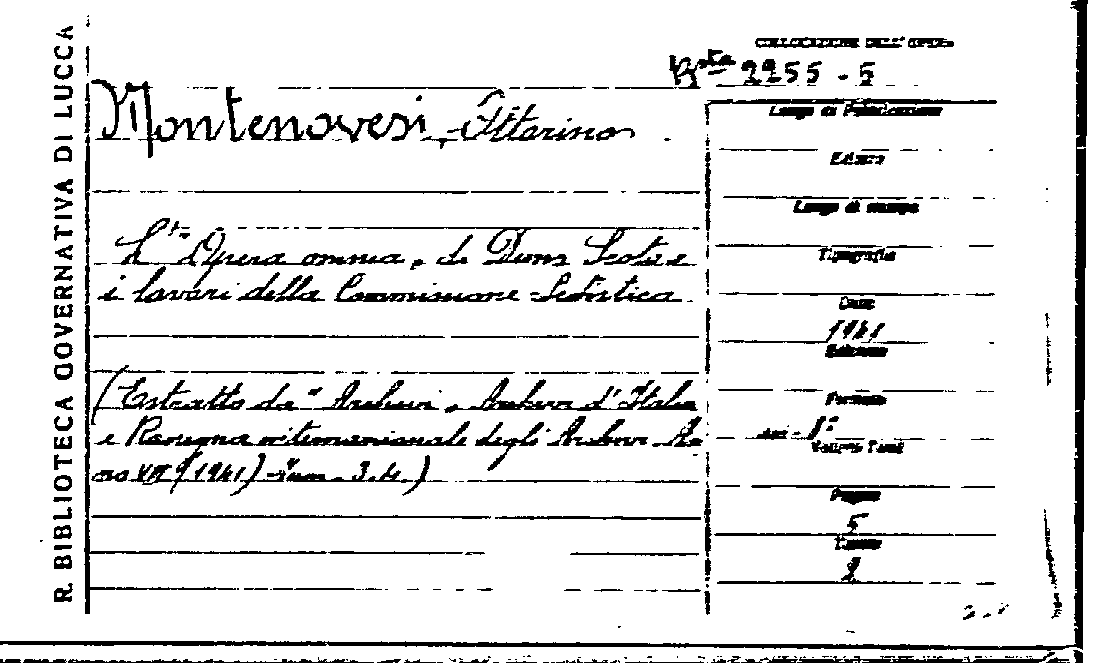 R. BIBLIOTECA GOVERNATIVA DI LUCCA
COLLOCAZIONE DELL'OPERA
Bsta 2255 - 5
Montenovesi, Ottorino
L'"Opera omnia" di Duns Scoto e
i lavori della Commissione Scotistica
(Estratto da "Archivi" Archivi d'Italia
e Rassegna internazionale degli Archivi An
no VIII (1941) - num. 3.4.)
Luogo di Pubblicazione
Editore
Luogo di stampa
Tipografia
Data
1941
Edizione
Formato
8°
Volumi Tomi
Pagine
5
Tavole
2